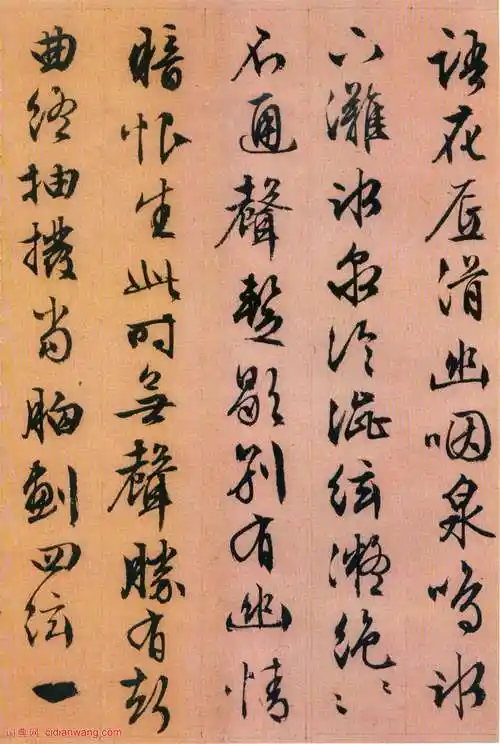 語花底滑幽咽泉鳴冰
下灘冰泉冷澀絃凝〻絕〻
不通聲暫歇別有幽情
暗恨生此時無聲勝有聲
曲終抽撥當胸劃四絃一
词典网 cidianwang.com